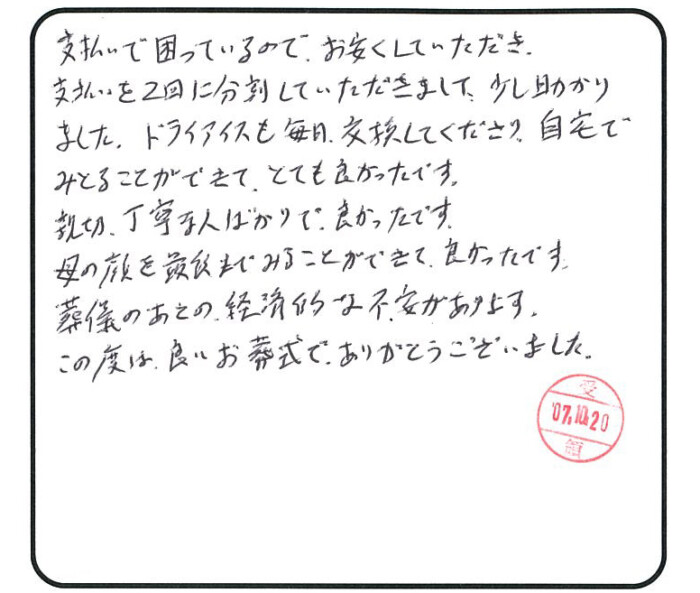 支払いで困っているので、お安くしていただき、
支払いを2回に分割していただきまして、少し助かり
ました。ドライアイスも毎日、交換してくださり、自宅で
みとることができて、とても良かったです。
親切、丁寧な人ばかりで、良かったです。
母の顔を最後までみることができて、良かったです。
葬儀のあとの、経済的な不安があります。
この度は、良いお葬式で、ありがとうございました。
受
'07.10.20
領